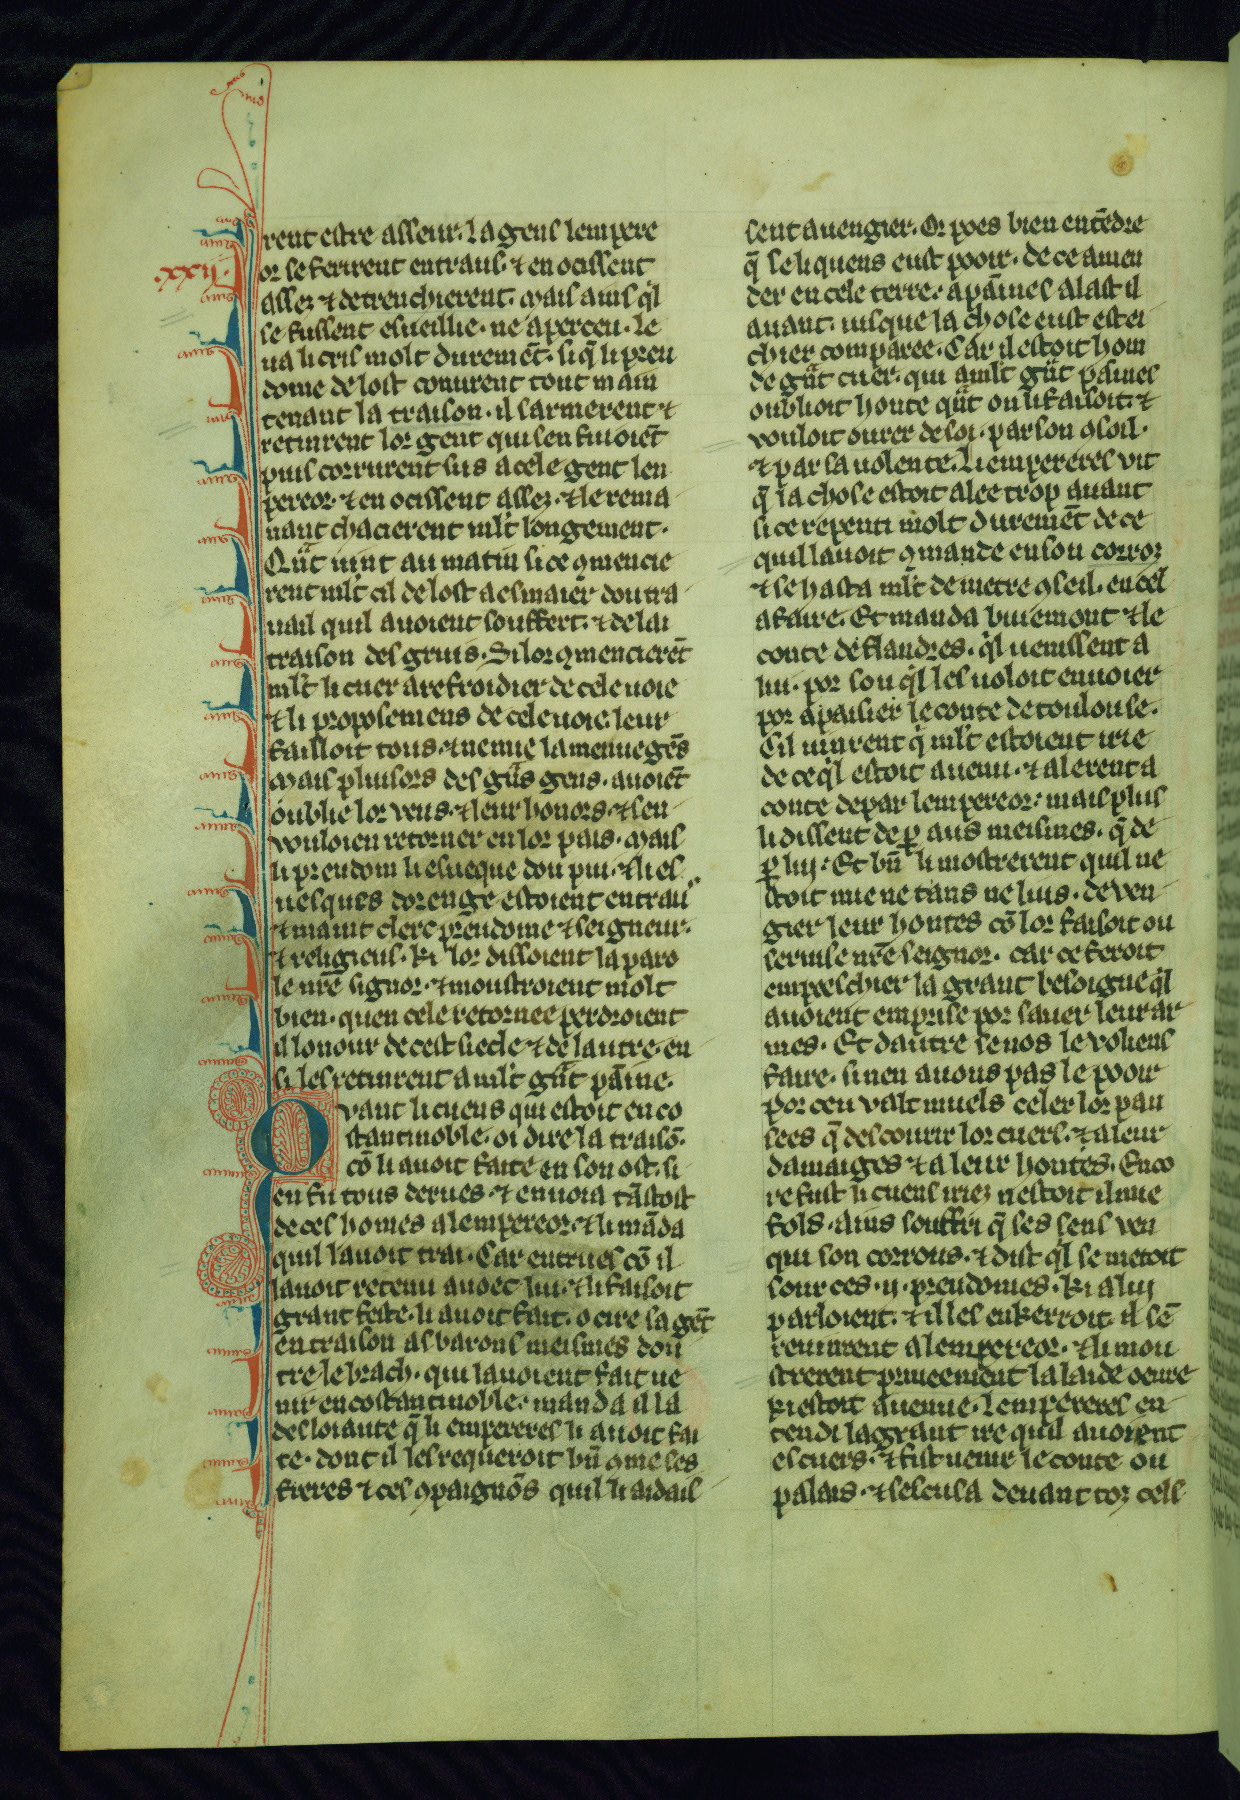 rent estre asseur. la gens lempere
or se ferirent entraus. ⁊ en ocissent
assez ⁊ detrenchierent. Mais ains q̃l
se fussent esueillie. ne aperceu. le
ua li cris molt duremẽt. si q̃ li preu
dome de lost conurent tout main
tenant la traison. il sarmerent ⁊
retinrent lor gent qui sen fuioiẽt
puis corrurent sus a cele gent len
pereor. ⁊ en ocissent assez. ⁊ le rema
nant chacierent ml't longement.
Qũt uint au matin si ce ꝯmencie
rent ml't cil de lost a esmaier dou tra
uail quil auoient souffert. ⁊ de lai
traison des grius. Si lor ꝯmencierẽt
ml't li cuer a refroidier de cele uoie
⁊ li proposemens de cele uoie. leur
failloit tous. ⁊ ne mie la menue gẽs
Mais pluisors des gũs gens. auoiẽt
oublie lor veus. ⁊ leur honors. ⁊ sen
vouloien retorner en lor pais. Mais
li preudom li esueque dou pui. ⁊ li es
uesques dorenge estoient entrau
⁊ maint clerc preudome ⁊ seigneur.
⁊ religieus. Ki lor dissoient la paro
le nr̃e signor. ⁊ moustroient molt
bien. quen cele retornee perdroient
il lonour de cest siecle ⁊ de lautre. en
si les retinrent a ml't gũt pãine.
Qvant li cuens qui estoit en co
stantinoble. oi dire la traisõ.
cõ li auoit faite en son ost. si
en fu tous derues. ⁊ enuoia tãstost
de ces homes a lempereor. ⁊ li mãda
quil lauoit trai. Car entrues cõ il
lauoit retenu auoec lui. ⁊ li faisoit
grant feste. li auoit fait. ocirre sa gẽt
en traison as barons meismes dou
tre le brach. qui lauoient fait ue
nir en costantinoble. manda il la
desloiaute q̃ li empereres li auoit fai
te. dont il les requeroit bñ ꝯme ses
freres ⁊ ces ꝯpaignõs quil li aidais
sent a uengier. Or poes bien entẽdre
q̃ se li quens eust pooir. de ce amen
der en cele terre. a pãines alast il
auant. iusque la chose eust estei
chier comparee. Car il estoit hom
de gũt cuer. qui a ml't gũt pãines
oublioit honte qũt on li faisoit. ⁊
vouloit ourer de soi. par son ꝯsoil.
⁊ par sa uolente. Li empereres vit
q̃ la chose estoit alee trop auant
si ce repenti molt duremẽt de ce
quil lauoit ꝯmande en son corroz
⁊ se hasta ml't de metre ꝯseil. en cel
afaire. Et manda buiemont ⁊ le
conte de flandres. q̃l uenissent a
lui. por sou q̃l les uoloit enuoier
por apaisier le conte de toulouse.
Cil uinrent q̃ ml't estoient irie
de ce q̃l estoit auenu. ⁊ alerent a
conte depar lempereor. mais plus
li dissent de ꝑ aus meismes. q̃ de
ꝑ luy. Et bñ li mostrerent quil ne
stoit mie ne tans ne luis. de ven
gier leur hontes cõ lor faisoit ou
seruise nr̃e seignor. car ce feroit
empeeschier la grant besoigne q̃l
auoient emprise por sauer leur ar
mes. Et dautre se uos le voliens
faire. si nen auons pas le pooir
por ceu valt muels celer lor pan
sees q̃ descourir lor cuers. ⁊ a leur
damaiges ⁊ a leur hontes. Enco
re fust li cuens iriez nestoit il mie
fols. Ains souffri q̃ ses sens ven
qui son corrous. ⁊ dist q̃l se metoit
sour ces .ii. preudomes. Ki a luy
parloient. ⁊ il les enkerroit. il sẽ
reuinrent a lempereor. ⁊ li mou
strerent priueement la laide oeure
ki estoit auenue. Lempereres en
tendi la grant ire quil auoient
es cuers. ⁊ fist uenir le conte ou
palais. ⁊ sescusa deuant toz cels